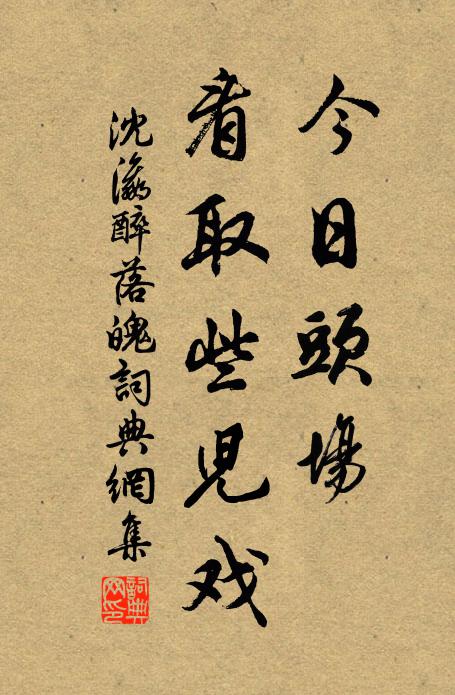 今日頭場
看取些兒戏
沈瀛醉落魄詞典網集
詞典网印